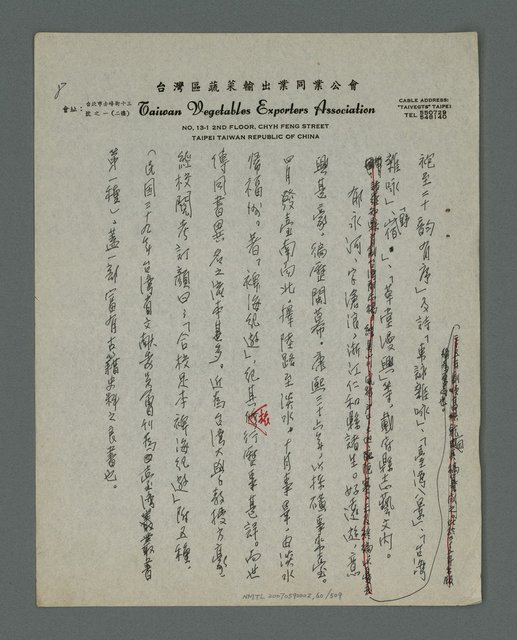 8
台灣區蔬菜輸出業同業公會
會址：台北市赤峰街十三號之一(二樓)
Taiwan Vegetables Exporters Association
CABLE ADDRESS:
"TAIVEGTS" TAIPEI
TEL 550728
549140
NO, 13-1 2ND FLOOR, CHYH FENG STREET
TAIPEI TAIWAN REPUBLIC OF CHINA
祀至二十韵有序」及詩「東詠雜咏」、「臺灣八景」、「台灣
雜咏」、「草堂漫興」等。載府縣志藝文內。
郁永河，字滄浪，浙江仁和縣諸生。好遠遊，意
興甚豪，徧歷閩幕。康熙三十六年，以採磺事來臺。
四月發臺南向北，擇陸路至淡水。十月事畢，由淡水
歸福州。著「裨海紀遊」，紀其旅行歷事甚詳。而世
傳同書異名之流本甚多。近為台灣大學教授方豪
經校閱考訂顏曰：「合校足本裨海紀遊」附五種。
(民國三十九年台灣省文獻委員會刊為四臺灣叢書
第一種」，蓋一部富有古籍史料之良書也。
NMTL 20070590002, 60/509